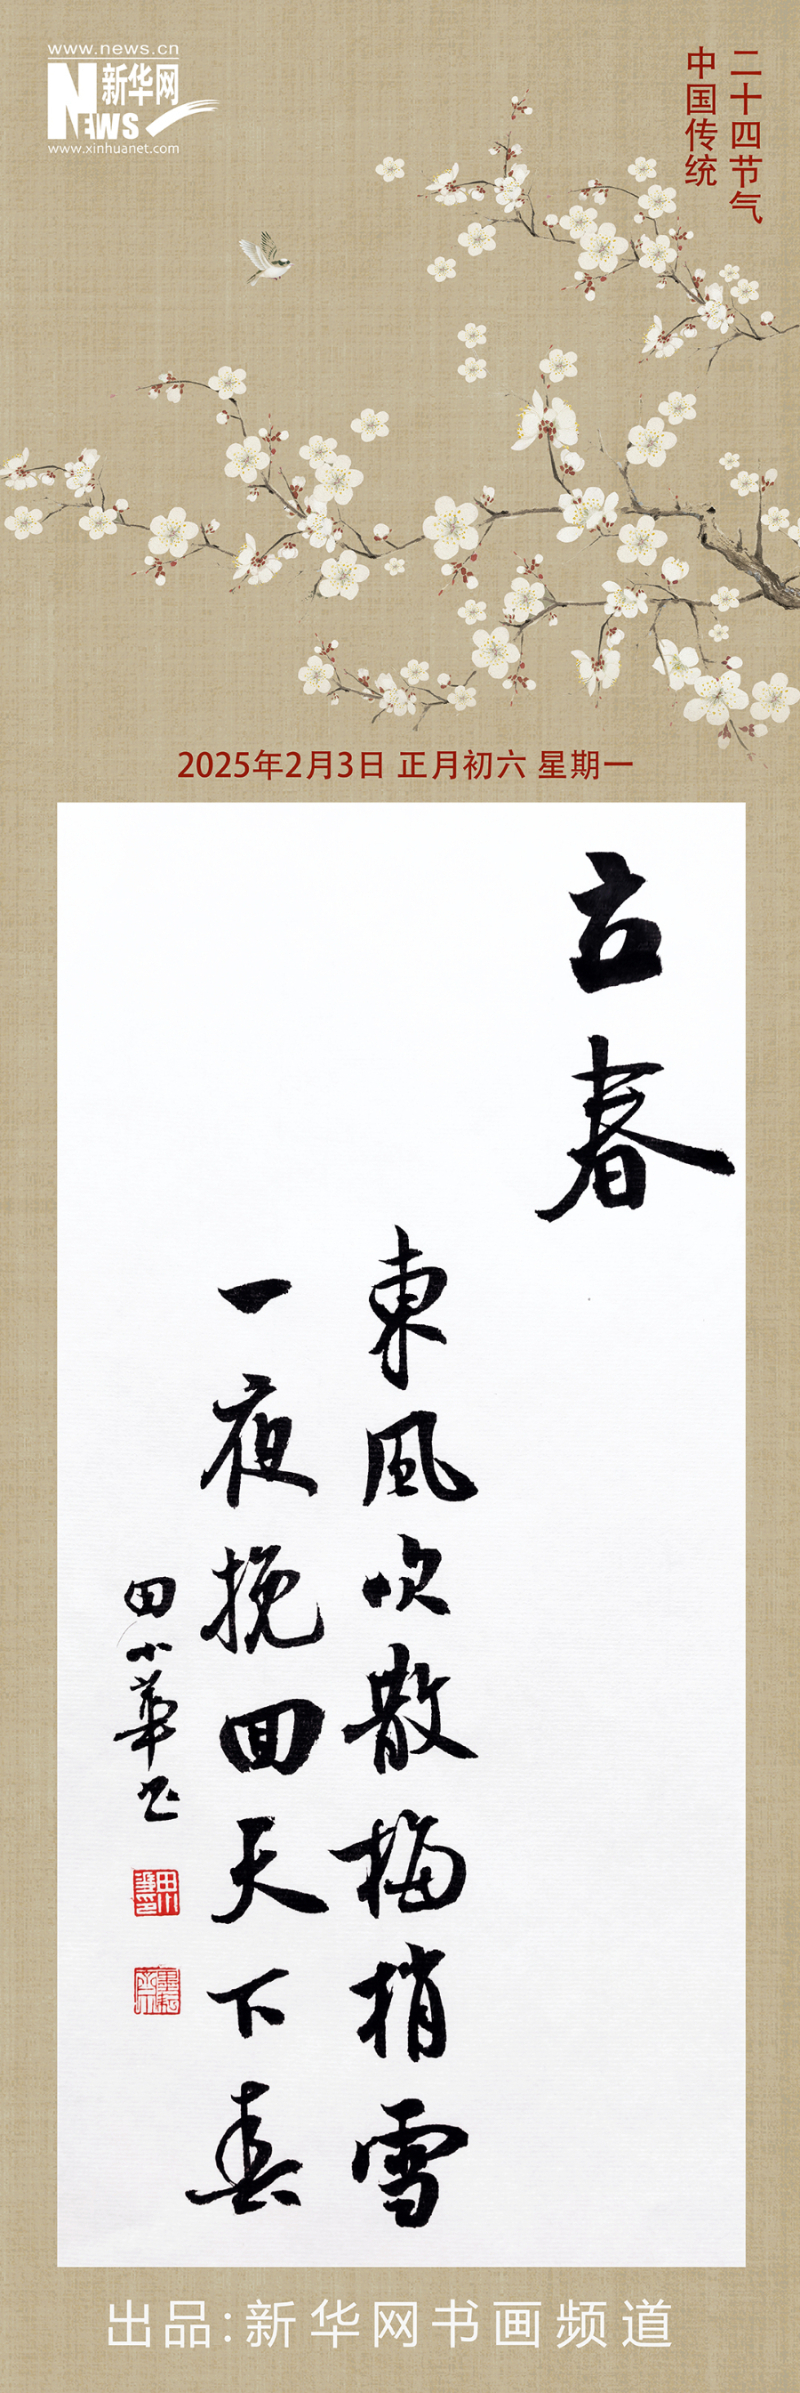 www.news.cn
新华网
NEWS
www.xinhuanet.com
二十四节气
中国传统
2025年2月3日 正月初六 星期一
立春
東風吹散梅梢雪
一夜挽回天下春
田小華书
出品:新华网书画频道